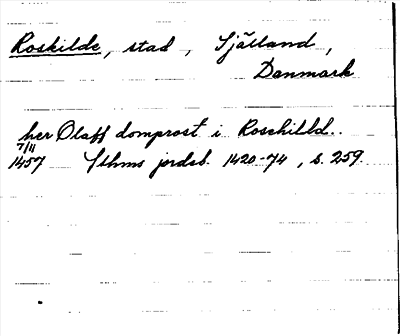 Roskilde, stad, Själland,
Danmark
her Olaff domprost i Roschilld..
7/11
1457 Sthms jordeb. 1420-74, s. 259.